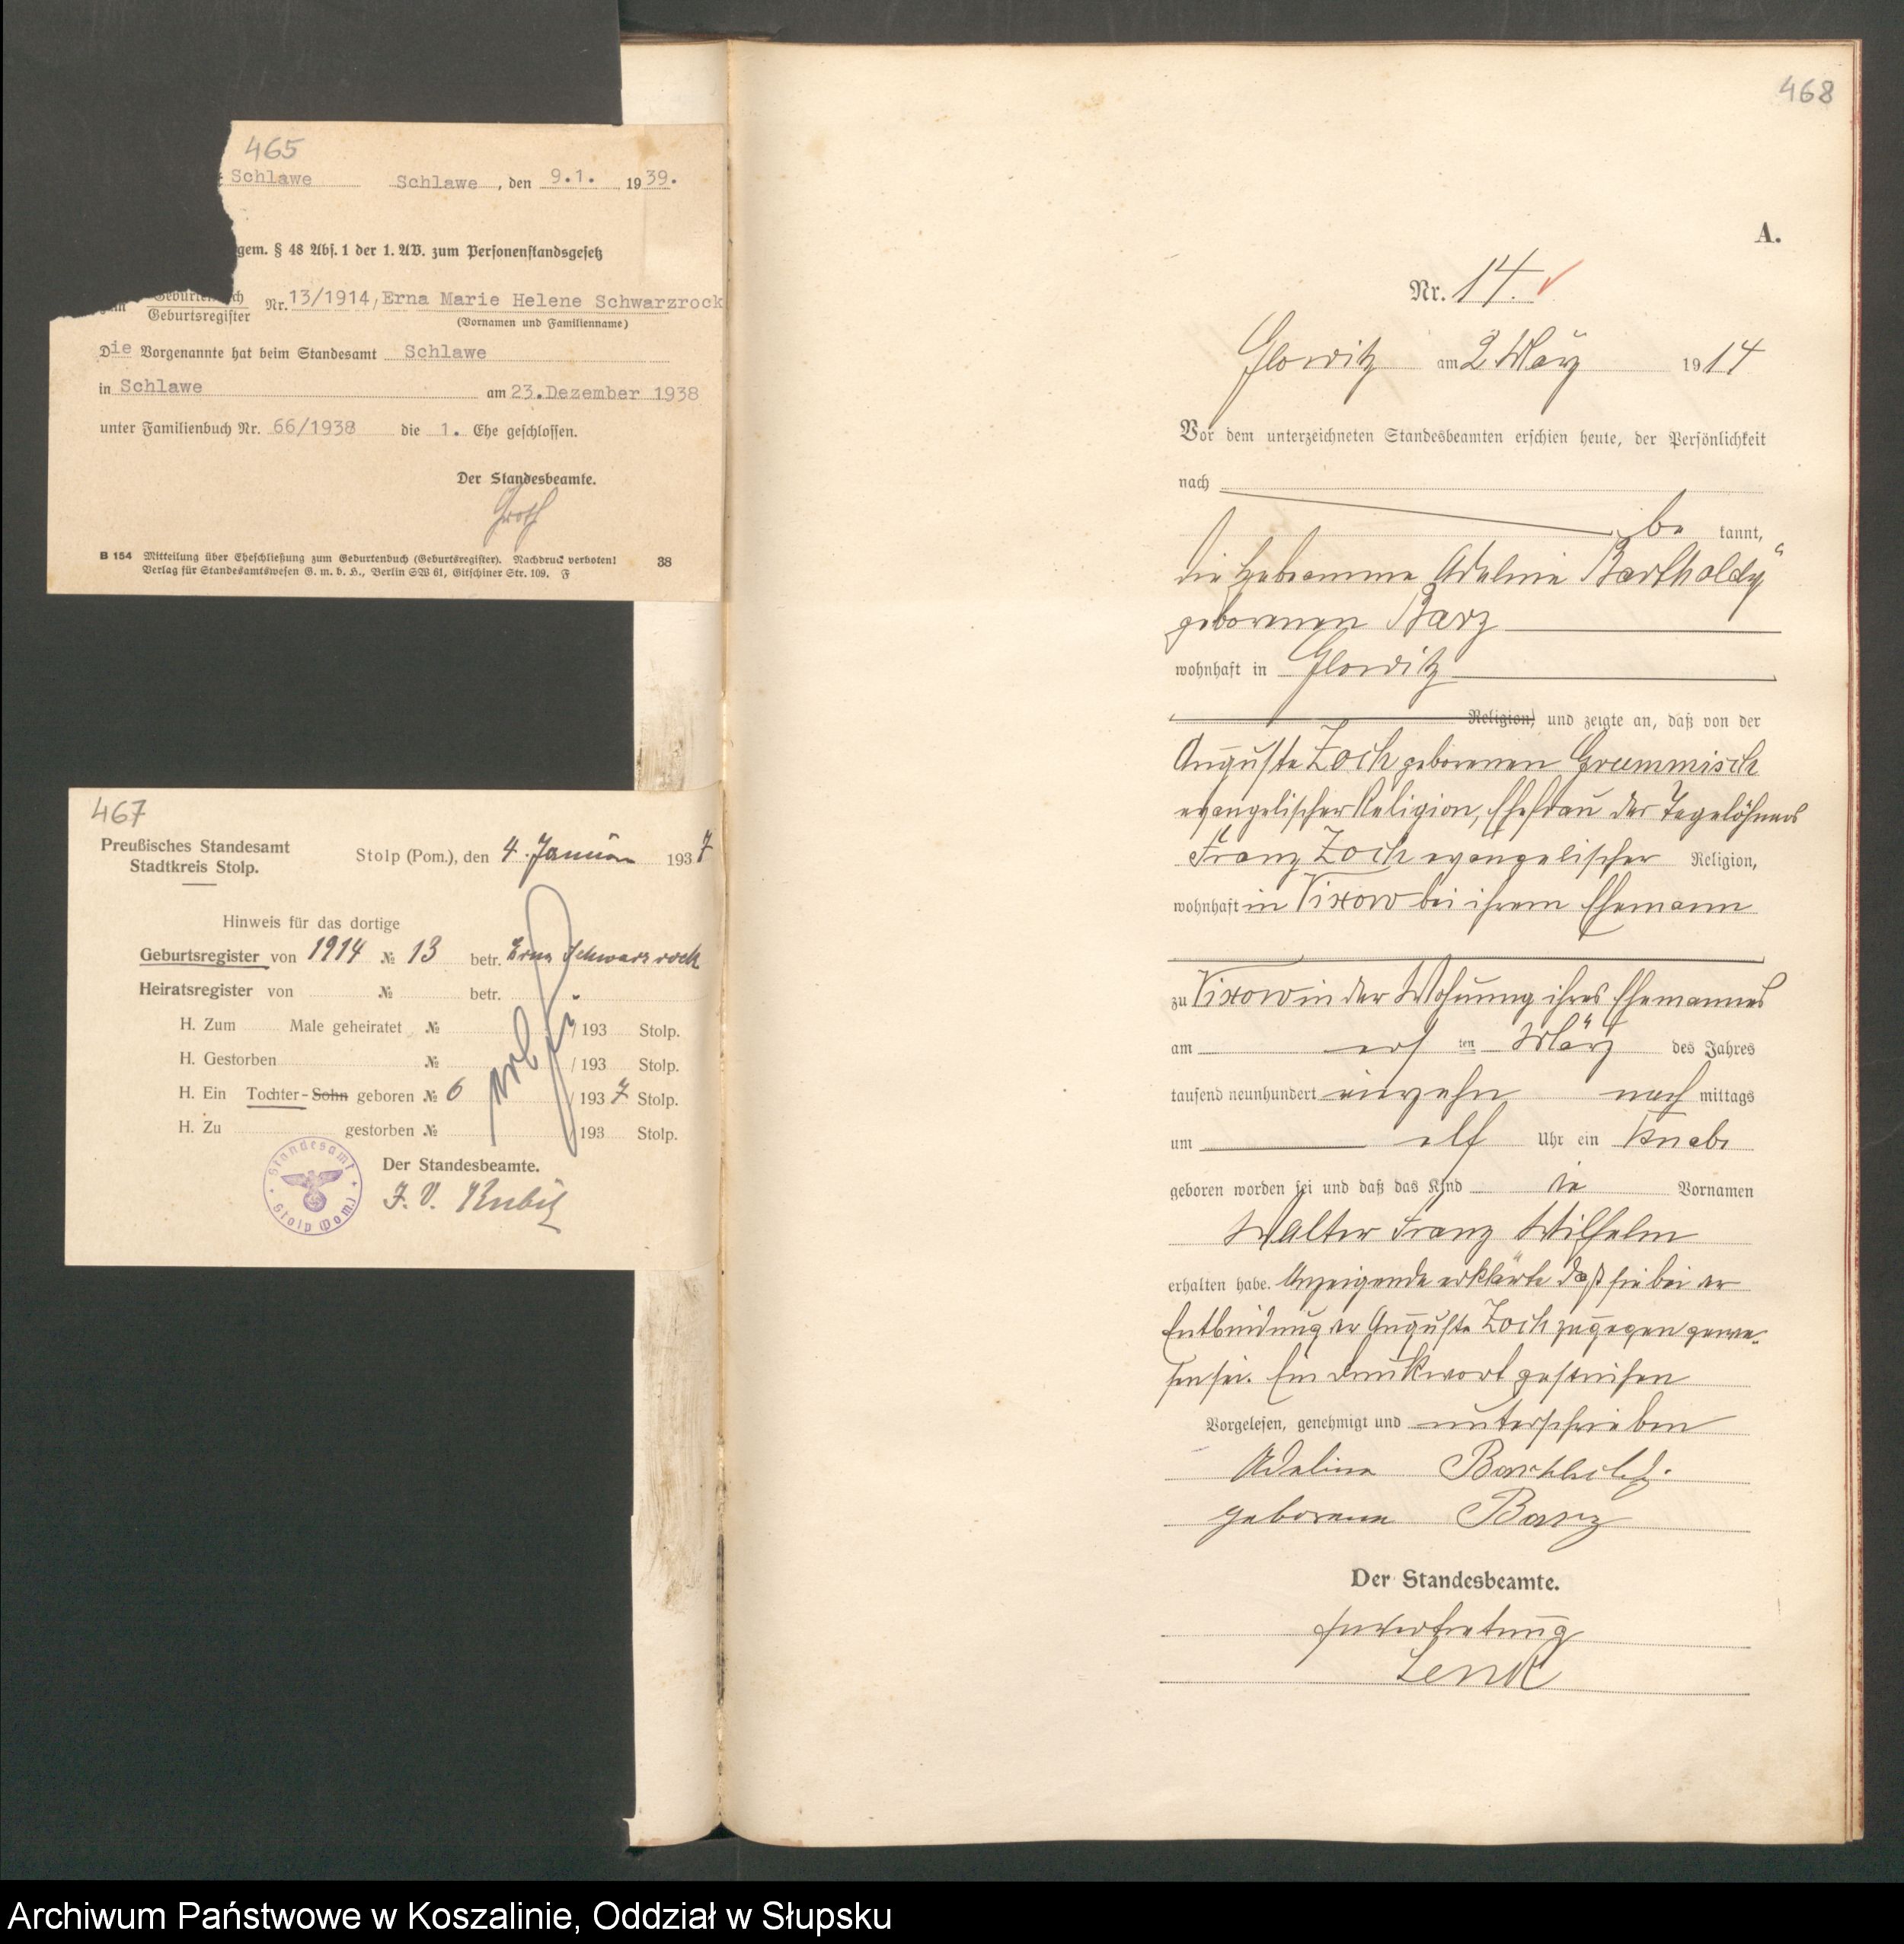 465
Schlawe Schlawe, den 9.1. 1939.
gem. § 48 Abs. 1 der 1. AV. zum Personenstandsgesetz
Geburtenbuch
Geburtsregister Nr. 13/1914, Erna Marie Helene Schwarzrock
(Vornamen und Familienname)
Die Vorgenannte hat beim Standesamt Schlawe
in Schlawe am 23.Dezember 1938
unter Familienbuch Nr. 66/1938 die 1. Ehe geschlossen.
Der Standesbeamte.
Groth
B 154 Mitteilung über Eheschließung zum Geburtenbuch (Geburtsregister). Nachdruck verboten! 38
Verlag für Standesamtswesen G. m. b. H., Berlin SW 61, Gitschiner Str. 109. F
467
Preußisches Standesamt
Stadtkreis Stolp.
Stolp (Pom.), den 4. Januar 1937
Hinweis für das dortige
Geburtsregister von 1914 № 13 betr. Erna Schwarzrock
Heiratsregister von № betr.
H. Zum Male geheiratet № / 193 Stolp.
H. Gestorben № / 193 Stolp.
H. Ein Tochter-Sohn geboren № 6 / 1937 Stolp.
H. Zu gestorben № / 193 Stolp.
Der Standesbeamte.
Standesamt
Stolp (Pom.)
J. V. Kubitz
468
A.
Nr. 14.
Glowitz am 2 März 1914
Vor dem unterzeichneten Standesbeamten erschien heute, der Persönlichkeit
nach
be kannt,
die Hebamme Adeline Bartholdy
geborenen Barz
wohnhaft in Glowitz
Religion, und zeigte an, daß von der
Auguste Zoch geborenen Grummisch
evangelischer Religion, Ehefrau des Tagelöhners
Franz Zoch evangelischer Religion,
wohnhaft in Vixow bei ihrem Ehemann
zu Vixow in der Wohnung ihres Ehemannes
am ersten März des Jahres
tausend neunhundert vierzehn nachmittags
um elf Uhr ein Knabe
geboren worden sei und daß das Kind die Vornamen
Walter Franz Wilhelm
erhalten habe. Anzeigende erklärte daß sie bei der
Entbindung der Auguste Zoch zugegen gewe-
sen sei. Ein Druckwort gestrichen
Vorgelesen, genehmigt und unterschrieben
Adeline Bartholdy.
geborene Barz
Der Standesbeamte.
In Vertretung
Lenk
Archiwum Państwowe w Koszalinie, Oddział w Słupsku